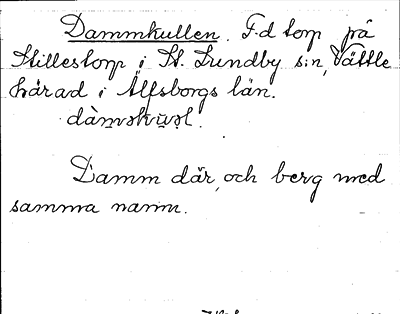 Dammkullen. F.d torp på
Stillestorp i St. Lundby s:n, Vättle
härad i Älfsborgs län.
dàmskuol.
Damm där, och berg med
samma namn.